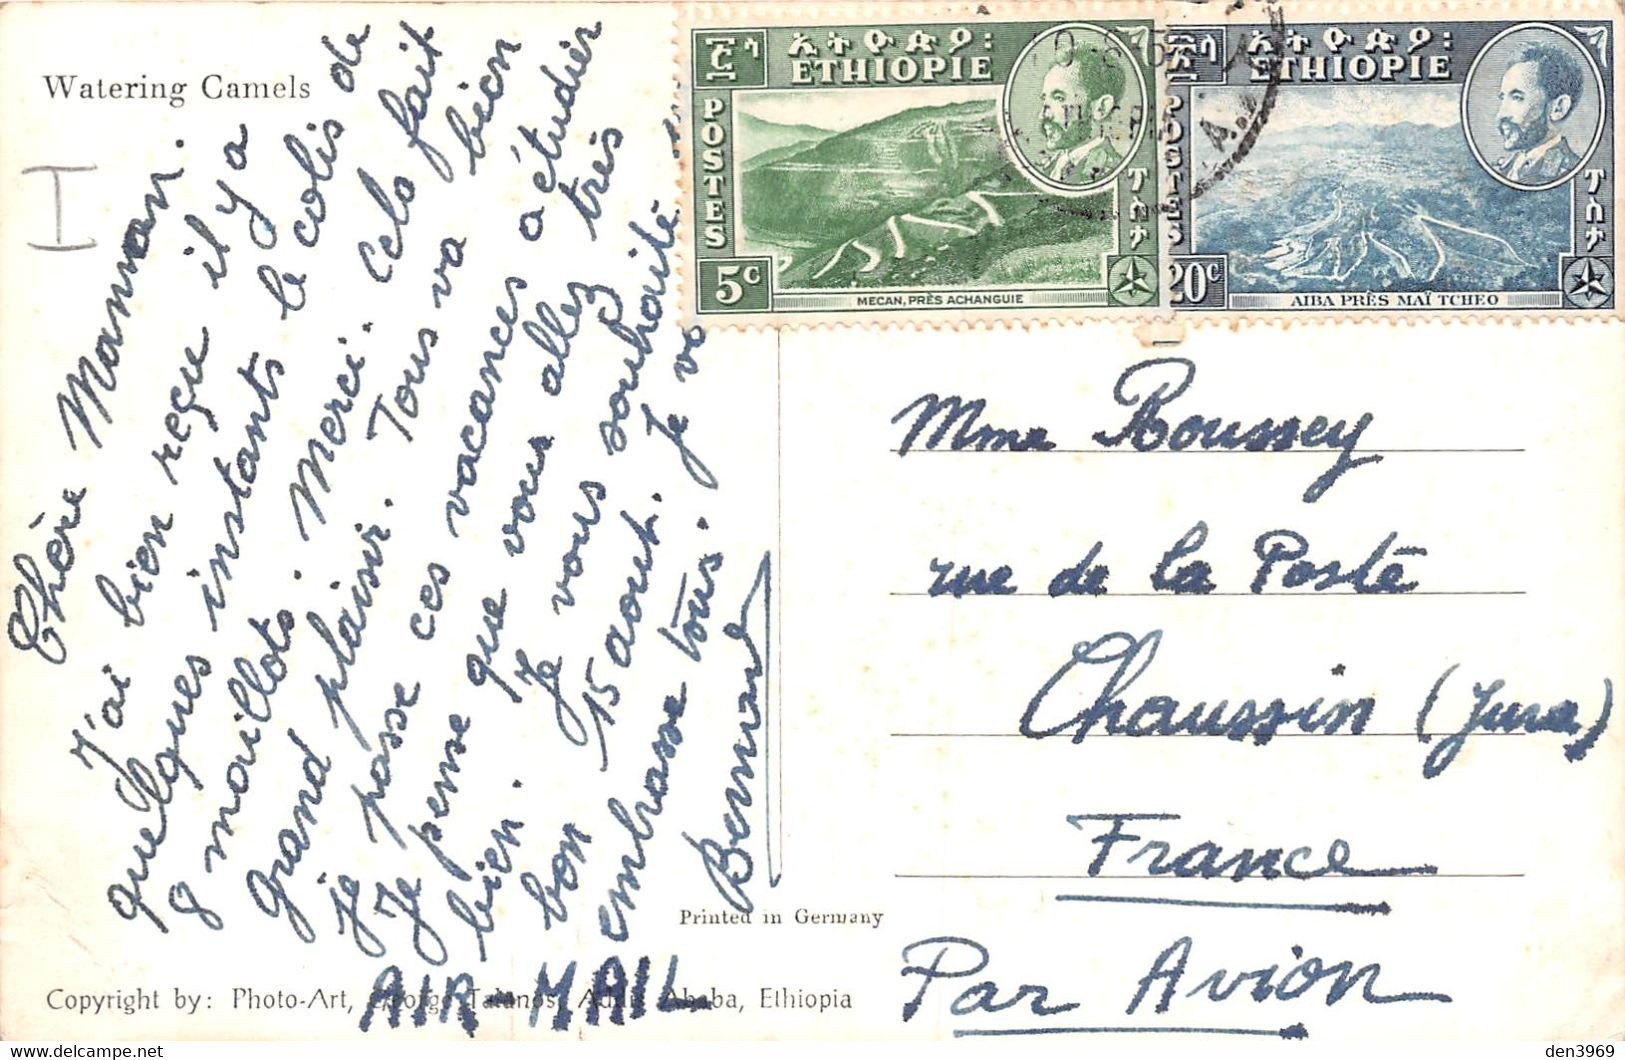 Watering Camels
I
Chère Maman.
J'ai bien reçu il y a
quelques instants le colis de
8 maillots. Merci. Cela fait
grand plaisir. Tous va bien
je passe ces vacances a étudier
Je pense que vous allez très
bien. Je vous souhaite
bon 15 aout. Je
embrasse tous.
Bernard
AIR MAIL
Printed in Germany
Copyright by: Photo-Art, George Talanos, Addis Ababa, Ethiopia
ኢትዮጵያ፡
ETHIOPIE
POSTES
ፖስታ
5c
MECAN, PRÈS ACHANGUIE
ኢትዮጵያ፡
ETHIOPIE
POSTES
ፖስታ
20c
AIBA PRÈS MAÏ TCHEO
A.A.
Mme Roussey
rue de la Poste
Chaussin (Jura)
France
Par Avion
den3969